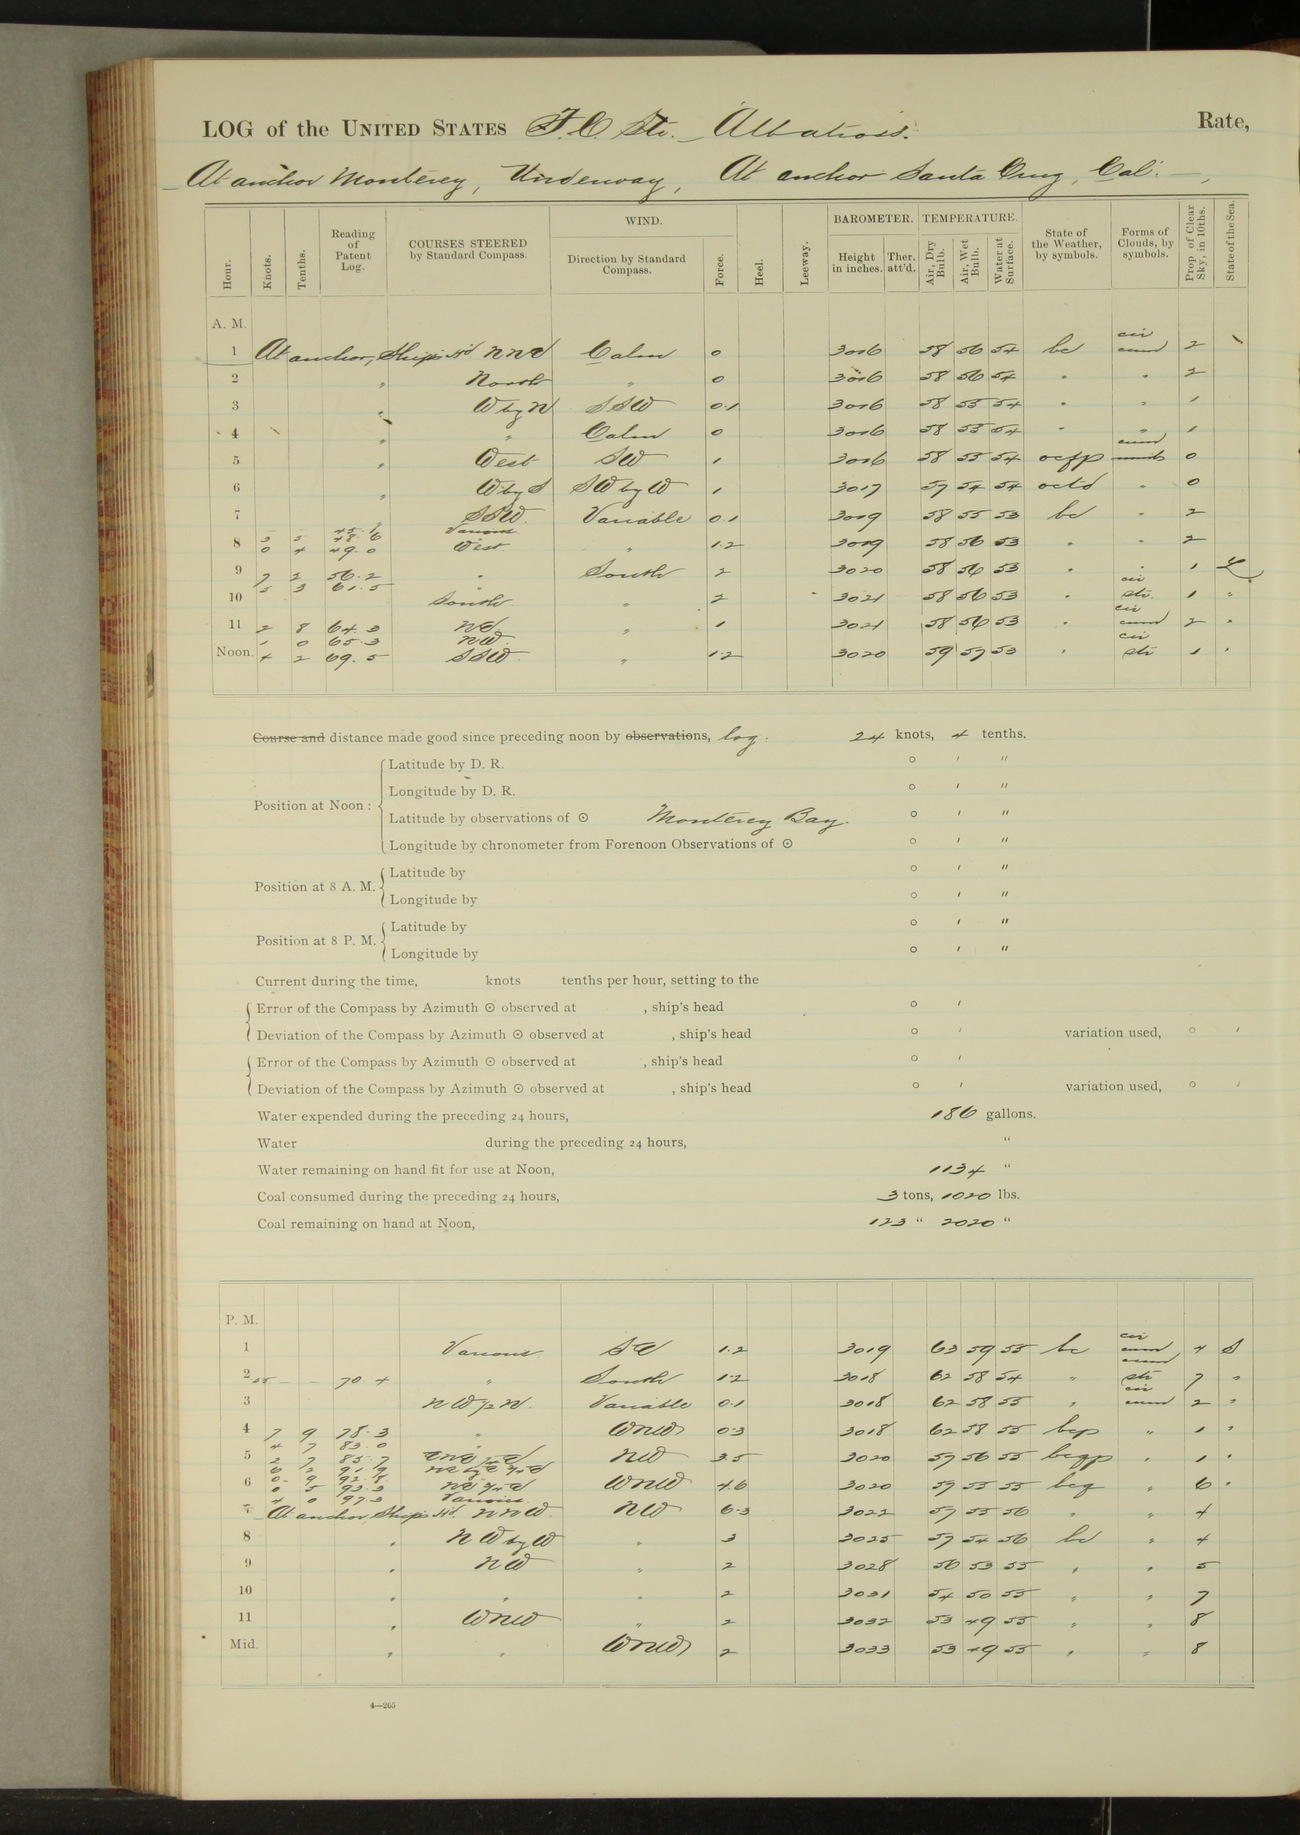 LOG of the UNITED STATES F. C. Str. Albatross. Rate,
At anchor Monterey, Underway, At anchor Santa Cruz, Cal.
Hour. Knots. Tenths. Reading of Patent Log. COURSES STEERED by Standard Compass. WIND. Direction by Standard Compass. Force. Heel. Leeway. BAROMETER. Height in inches. Ther. att'd. TEMPERATURE. Air, Dry Bulb. Air, Wet Bulb. Water at Surface. State of the Weather, by symbols. Forms of Clouds, by symbols. Prop. of Clear Sky, in 10ths. State of the Sea.
A. M.
1 At anchor, Ship's H'd NNE Calm 0 3016 58 56 54 bc cir cum 2
2 " North " 0 3016 58 56 54 " " 2
3 " W by N SSW 0.1 3016 58 55 54 " " 1
4 " " Calm 0 3016 58 55 54 " " 1
5 " West SW 1 3016 58 55 54 ocfp cum 0
6 " W by S SW by W 1 3017 57 54 54 octd " 0
7 " SSW. Variable 0.1 3019 58 55 53 bc " 2
8 3 5 45.6 48.6 Various
0 4 49.0 West " 1.2 3019 58 56 53 " " 2
9 7 2 56.2 " South 2 3020 58 56 53 " " 1 L
10 5 3 61.5 " South " 2 3021 58 56 53 " cir str. 1 "
11 2 8 64.3 NE. " 1 3021 58 56 53 " cir cum 2 "
1 0 65.3 NW.
Noon. 4 2 69.5 SSW. " 1.2 3020 59 57 53 " cir str 1 "
Course and distance made good since preceding noon by observations, log. 24 knots, 4 tenths.
Position at Noon: Latitude by D. R. ° ′ ″
Longitude by D. R. ° ′ ″
Latitude by observations of ☉ Monterey Bay. ° ′ ″
Longitude by chronometer from Forenoon Observations of ☉ ° ′ ″
Position at 8 A. M. Latitude by ° ′ ″
Longitude by ° ′ ″
Position at 8 P. M. Latitude by ° ′ ″
Longitude by ° ′ ″
Current during the time, knots tenths per hour, setting to the
Error of the Compass by Azimuth ☉ observed at , ship's head ° ′
Deviation of the Compass by Azimuth ☉ observed at , ship's head ° ′ variation used, ° ′
Error of the Compass by Azimuth ☉ observed at , ship's head ° ′
Deviation of the Compass by Azimuth ☉ observed at , ship's head ° ′ variation used, ° ′
Water expended during the preceding 24 hours, 186 gallons.
Water during the preceding 24 hours, "
Water remaining on hand fit for use at Noon, 1134 "
Coal consumed during the preceding 24 hours, 3 tons, 1020 lbs.
Coal remaining on hand at Noon, 123 " 2020 "
P. M.
1 Various SE 1.2 3019 63 59 55 bc cir cum 4 S
2 — — 70.4 " South 1.2 3018 62 58 54 " cum str 7 "
3 NW½N. Variable 0.1 3018 62 58 55 " cir cum 2 "
4 7 9 78.3 " WNW 0.3 3018 62 58 55 bcp " 1 "
4 7 83.0
5 2 7 85.7 NW 3.5 3020 57 56 55 bcqp " 1 "
6 2 91.9 NE by E ¼ E
6 0 9 92.8 NE ¼ E WNW 4.6 3020 57 55 55 bcq " 6 "
0 5 93.3
4 0 97.3 Various
7 At anchor, Ship's H'd. NNW. NW 6-3 3022 57 55 56 " " 4
8 " NW by W " 3 3025 57 54 56 bc " 4
9 " NW " 2 3028 56 53 55 " " 5
10 " " " 2 3031 54 50 55 " " 7
11 " WNW " 2 3032 53 49 55 " " 8
Mid. " " WNW 2 3033 53 49 55 " " 8
4—265